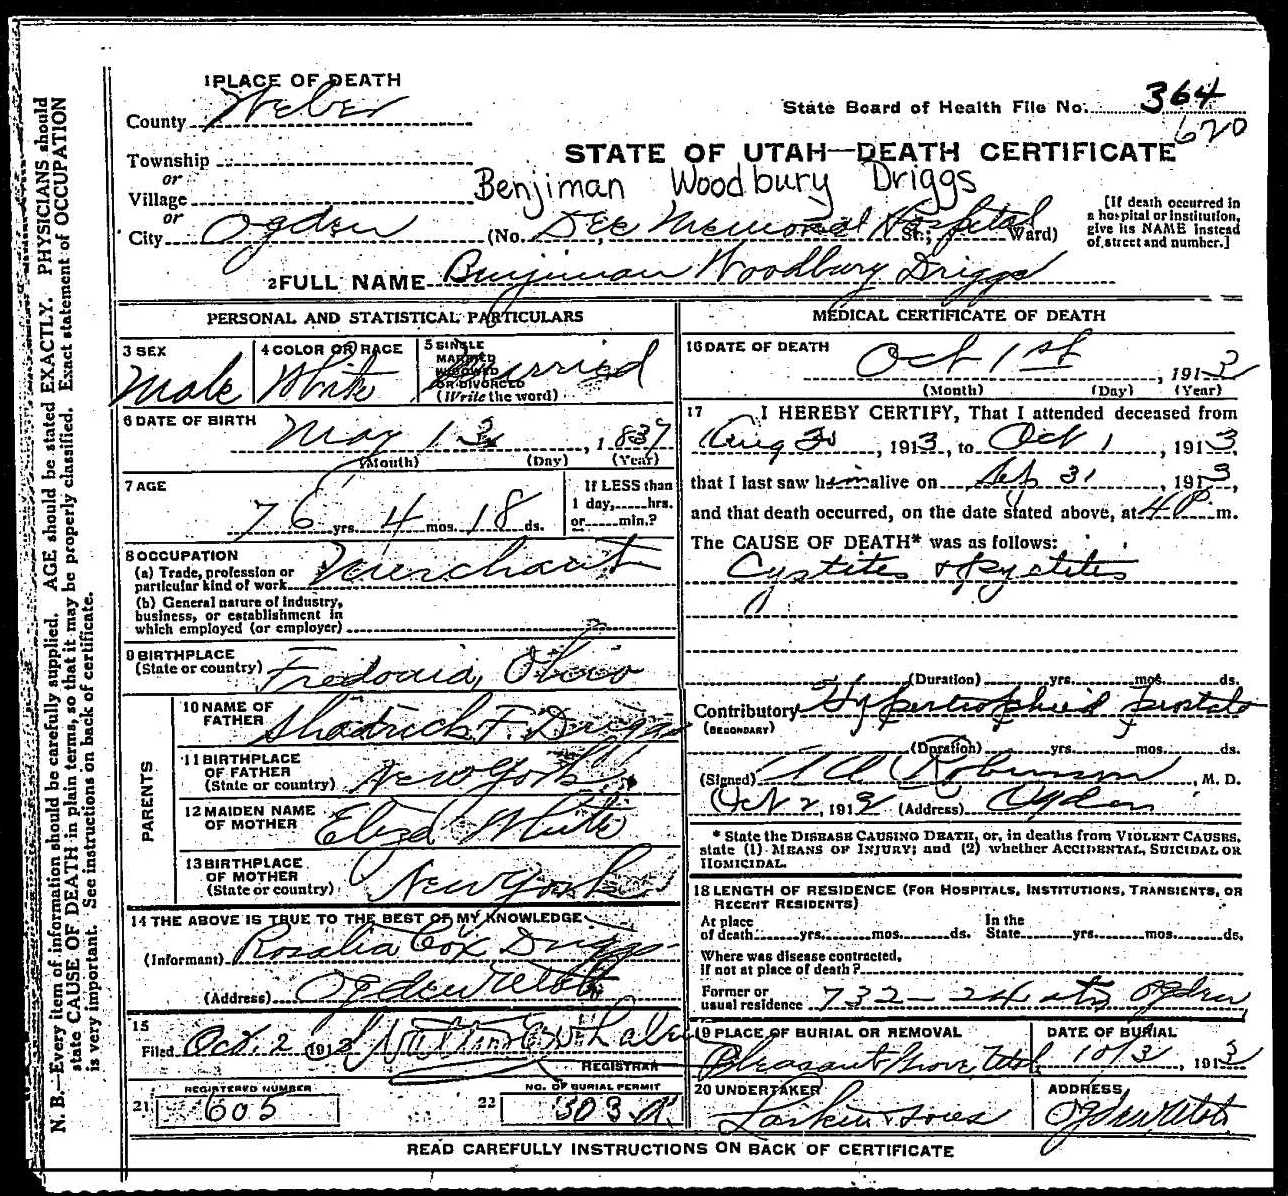 1 PLACE OF DEATH
County Weber
State Board of Health File No. 364
620
Township
or
Village
or
City Ogden
STATE OF UTAH—DEATH CERTIFICATE
Benjiman Woodbury Driggs
(No. Dee Memorial Hospital St.; Ward)
[If death occurred in
a hospital or institution,
give its NAME instead
of street and number.]
2 FULL NAME Benjiman Woodbury Driggs
PERSONAL AND STATISTICAL PARTICULARS
3 SEX
Male
4 COLOR OR RACE
White
5 SINGLE
MARRIED
WIDOWED
OR DIVORCED
(Write the word)
Married
6 DATE OF BIRTH
May 13, 1837
(Month) (Day) (Year)
7 AGE
76 yrs. 4 mos. 18 ds.
If LESS than
1 day, hrs.
or min.?
8 OCCUPATION
(a) Trade, profession or
particular kind of work Merchant
(b) General nature of industry,
business, or establishment in
which employed (or employer)
9 BIRTHPLACE
(State or country) Fredonia, Ohio
PARENTS
10 NAME OF
FATHER Shadrick F. Driggs
11 BIRTHPLACE
OF FATHER
(State or country) New York
12 MAIDEN NAME
OF MOTHER Eliza White
13 BIRTHPLACE
OF MOTHER
(State or country) New York
14 THE ABOVE IS TRUE TO THE BEST OF MY KNOWLEDGE
(Informant) Rosalia Cox Driggs
(Address) Ogden Utah
15
Filed Oct. 2 1913
REGISTRAR
REGISTERED NUMBER
21 605
NO. OF BURIAL PERMIT
22 303
MEDICAL CERTIFICATE OF DEATH
16 DATE OF DEATH
Oct 1st, 1913
(Month) (Day) (Year)
17 I HEREBY CERTIFY, That I attended deceased from
Aug, 1913, to Oct 1, 1913,
that I last saw him alive on 31, 1913,
and that death occurred, on the date stated above, at 4 P. m.
The CAUSE OF DEATH* was as follows:
Cystitis & Pyelitis
(Duration) yrs. mos. ds.
Contributory Hypertrophied prostate
(SECONDARY)
(Duration) yrs. mos. ds.
(Signed) Robinson, M. D.
Oct 2, 191 (Address) Ogden
* State the DISEASE CAUSING DEATH, or, in deaths from VIOLENT CAUSES,
state (1) MEANS OF INJURY; and (2) whether ACCIDENTAL, SUICIDAL OR
HOMICIDAL.
18 LENGTH OF RESIDENCE (FOR HOSPITALS, INSTITUTIONS, TRANSIENTS, OR
RECENT RESIDENTS)
At place
of death yrs. mos. ds.
In the
State yrs. mos. ds.
Where was disease contracted,
if not at place of death?
Former or
usual residence 732 – 24 st Ogden
19 PLACE OF BURIAL OR REMOVAL
Pleasant Grove, Utah
DATE OF BURIAL
10/3, 1913
20 UNDERTAKER
Larkin & sons
ADDRESS
Ogden Utah
READ CAREFULLY INSTRUCTIONS ON BACK OF CERTIFICATE
N. B.—Every item of information should be carefully supplied. AGE should be stated EXACTLY. PHYSICIANS should
state CAUSE OF DEATH in plain terms, so that it may be properly classified. Exact statement of OCCUPATION
is very important. See instructions on back of certificate.